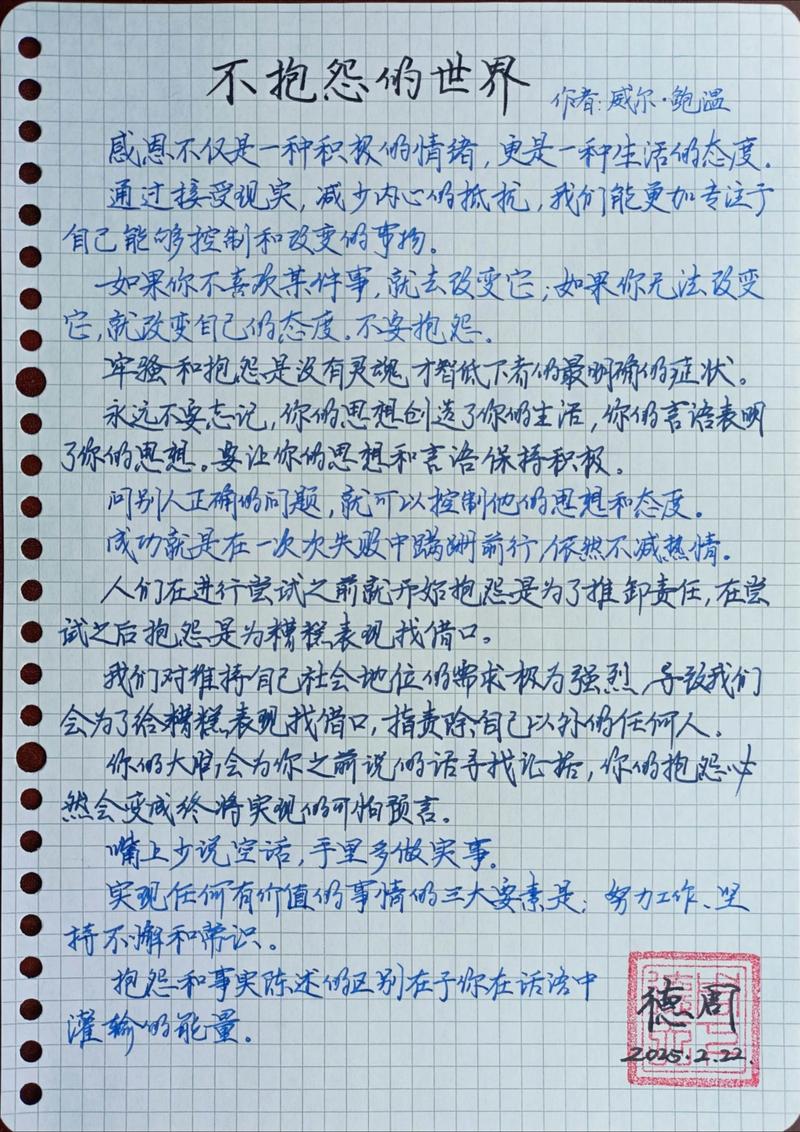 不抱怨的世界
作者:威尔·鲍温
感恩不仅是一种积极的情绪,更是一种生活的态度。
通过接受现实,减少内心的抵抗,我们能更加专注于
自己能够控制和改变的事物。
如果你不喜欢某件事,就去改变它;如果你无法改变
它,就改变自己的态度。不要抱怨。
牢骚和抱怨是没有灵魂才智低下者的最明确的症状。
永远不要忘记,你的思想创造了你的生活,你的言语表明
了你的思想。要让你的思想和言语保持积极。
问别人正确的问题,就可以控制他的思想和态度。
成功就是在一次次失败中蹒跚前行,依然不减热情。
人们在进行尝试之前就开始抱怨是为了推卸责任,在尝
试之后抱怨是为糟糕表现找借口。
我们对维持自己社会地位的需求极为强烈,导致我们
会为了给糟糕表现找借口,指责除自己以外的任何人。
你的大脑会为你之前说的话寻找论据,你的抱怨必
然会变成终将实现的可怕预言。
嘴上少说空话,手里多做实事。
实现任何有价值的事情的三大要素是:努力工作、坚
持不懈和常识。
抱怨和事实陈述的区别在于你在话语中
灌输的能量。
德周
2025.2.22.